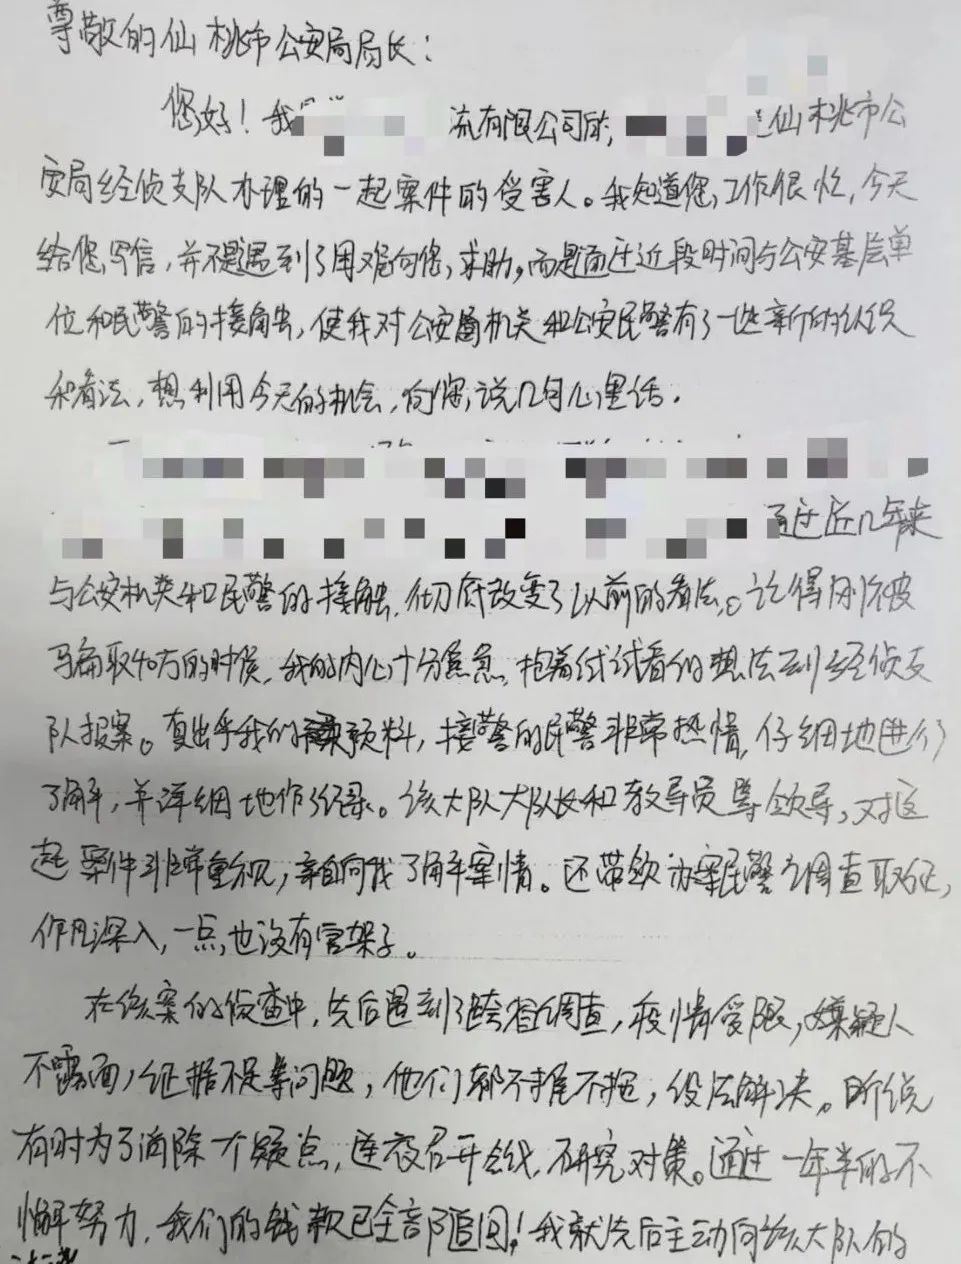 尊敬的仙桃市公安局局长：
您好！我 流有限公司的， 是仙桃市公
安局经侦支队办理的一起案件的受害人。我知道您工作很忙，今天
给您写信，并不是遇到了困难向您求助，而是通过近段时间与公安基层单
位和民警的接触，使我对公安机关和公安民警有了一些新的认识
和看法，想利用今天的机会，向您说几句心里话。
通过近几年来
与公安机关和民警的接触，彻底改变了以前的看法。记得刚被
骗取40万的时候，我的内心十分焦急，抱着试试看的想法到经侦支
队报案。直出乎我的预料，接警的民警非常热情，仔细地进行
了解，并详细地作了纪录。该大队大队长和教导员等领导，对这
起案件非常重视，亲自向我了解案情。还带领办案民警调查取证，
作风深入，一点也没有官架子。
在该案的侦查中，先后遇到了跨省调查，疫情受限，嫌疑人
不露面，证据不足等问题，他们都不推不拖，设法解决。听说
有时为了消除一个疑点，连夜召开会议，研究对策。通过一年半的不
懈努力，我们的钱款已全部追回！我就先后主动向该大队的